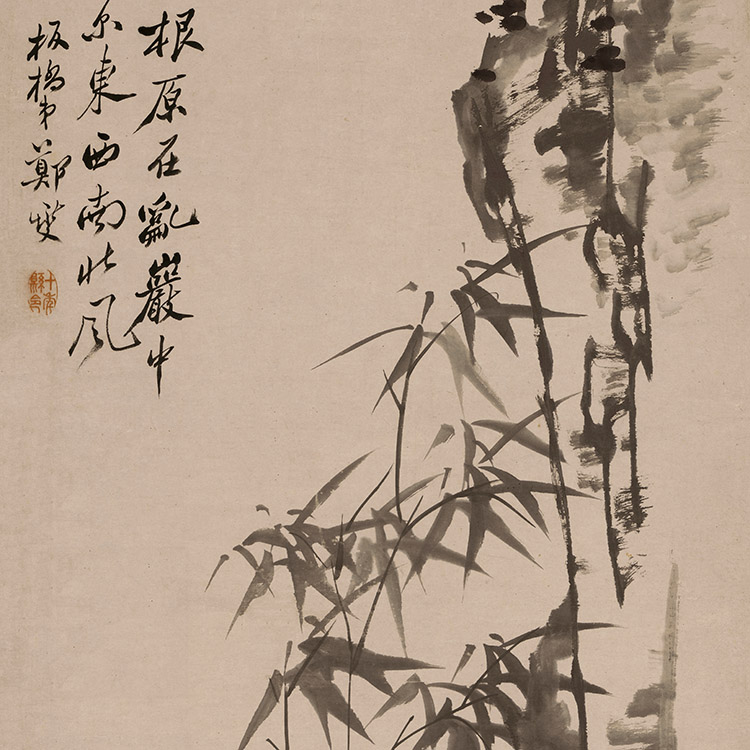 根原在亂巖中
尔東西南北風
板橋弟鄭燮
十年縣令